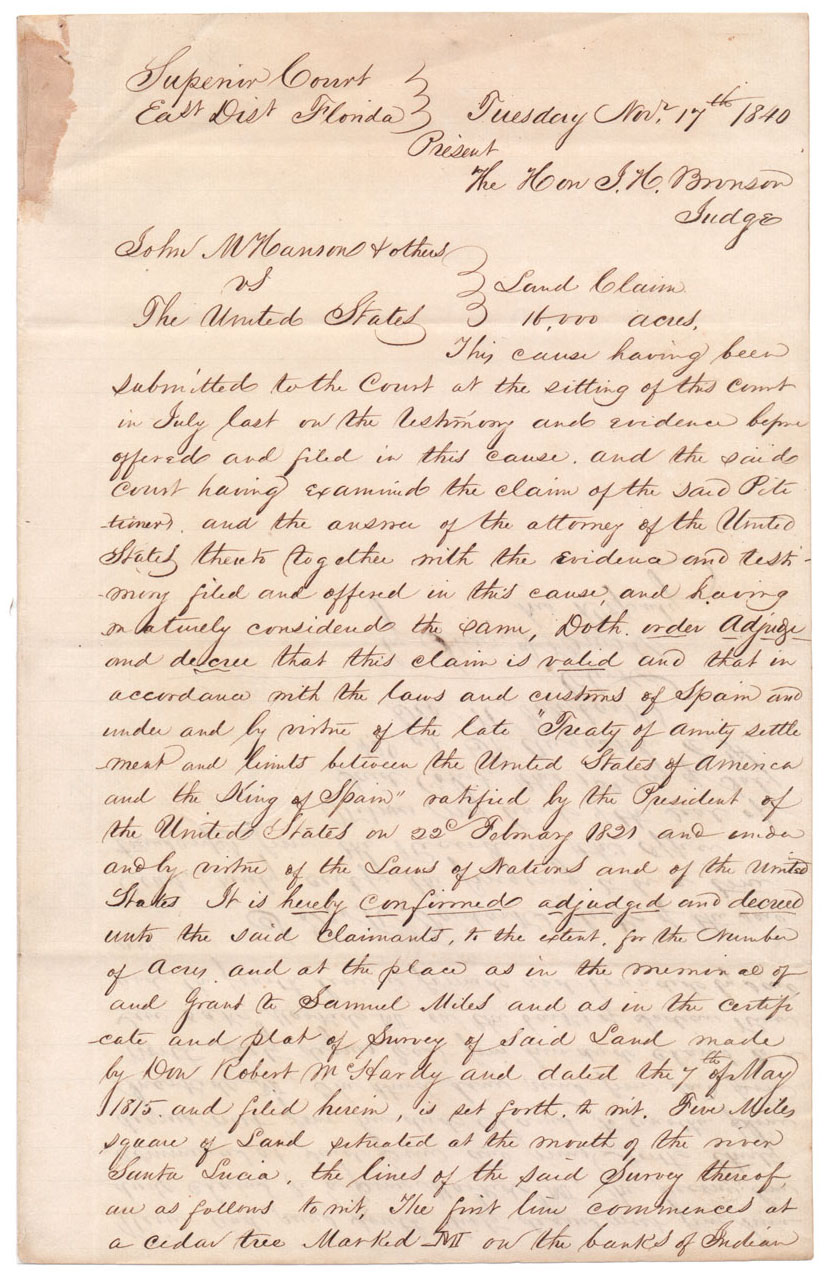 Superior Court
East Dist Florida Tuesday Novr 17th 1840
Present
The Hon I. H. Bronson
Judge
John M Hanson & others
vs Land Claim
The United States 16,000 acres.
This cause having been
submitted to the Court at the sitting of this court
in July last on the testimony and evidence before
offered and filed in this cause. and the said
court having examined the claim of the said Peti
-tioners. and the answer of the attorney of the United
States thereto together with the evidence and testi-
-mony filed and offered in this cause, and having
maturely considered the same, Doth. order Adjudge
and decree that this claim is valid and that in
accordance with the laws and customs of Spain and
under and by virtue of the late "Treaty of amity settle
-ment and limits between the United States of America
and the King of Spain" ratified by the President of
the United States on 22d February 1821 and under
and by virtue of the Laws of Nations and of the United
States It is hereby confirmed adjudged and decreed
unto the said claimants, to the extent. for the Number
of Acres. and at the place as in the memorial of
and Grant to Samuel Miles and as in the certifi
-cate and plat of Survey of said Land made
by Don Robert McHardy and dated the 7th of May
1815. and filed herein, is set forth. to wit. Five Miles
square of Land situated at the mouth of the river
Santa Lucia, the lines of the said Survey thereof
are as follows to wit, The first line commences at
a cedar tree Marked on the banks of Indian